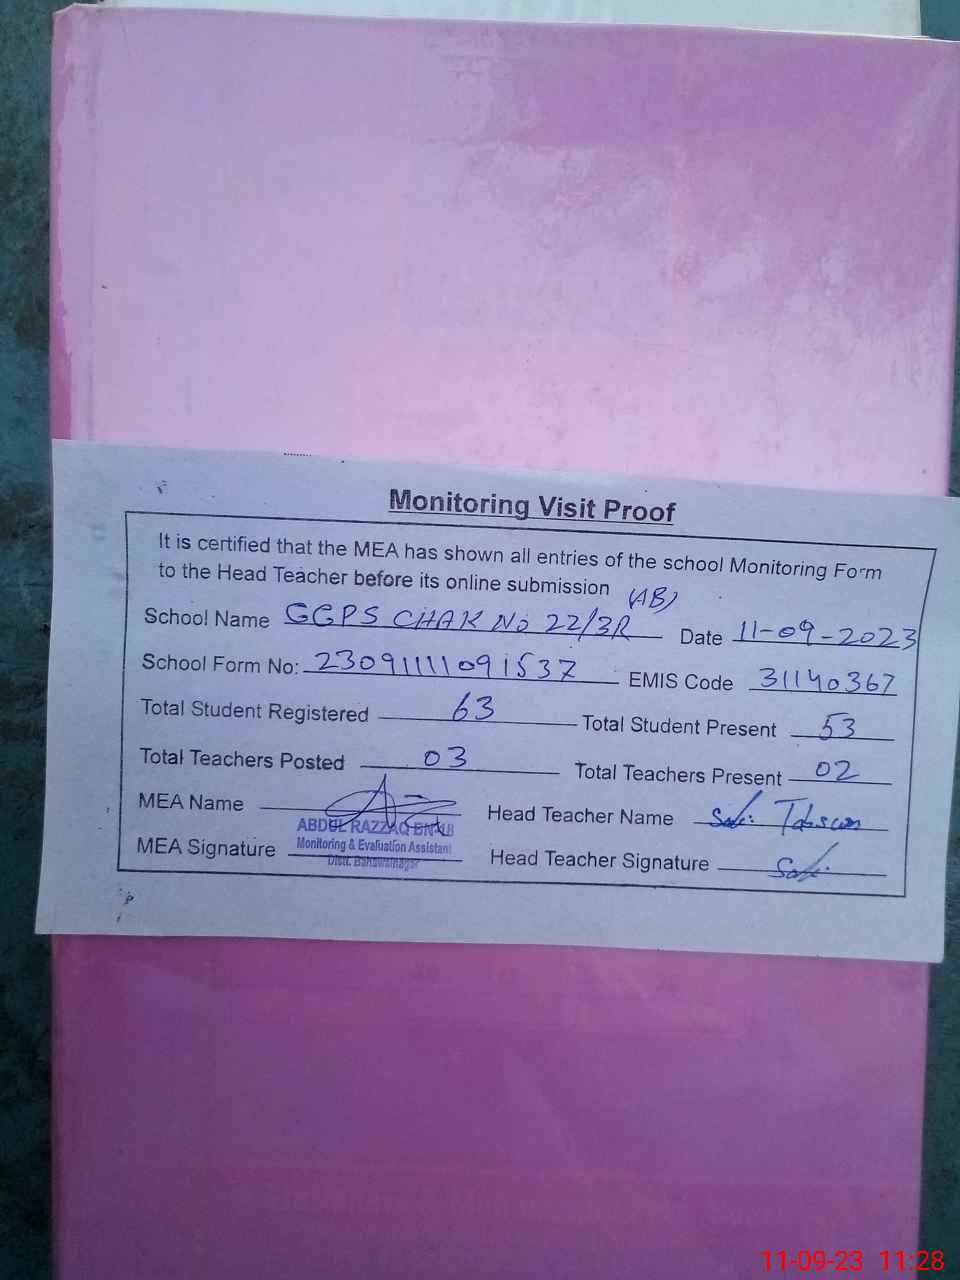 Monitoring Visit Proof
It is certified that the MEA has shown all entries of the school Monitoring Form
to the Head Teacher before its online submission
(AB)
School Name GGPS CHAK No 22/3R Date 11-09-2023
School Form No: 23091111091537 EMIS Code 31140367
Total Student Registered 63 Total Student Present 53
Total Teachers Posted 03 Total Teachers Present 02
MEA Name Head Teacher Name
ABDUL RAZZAQ
Monitoring & Evaluation Assistant
MEA Signature Head Teacher Signature
Distt. Bahawalnagar
11-09-23 11:28